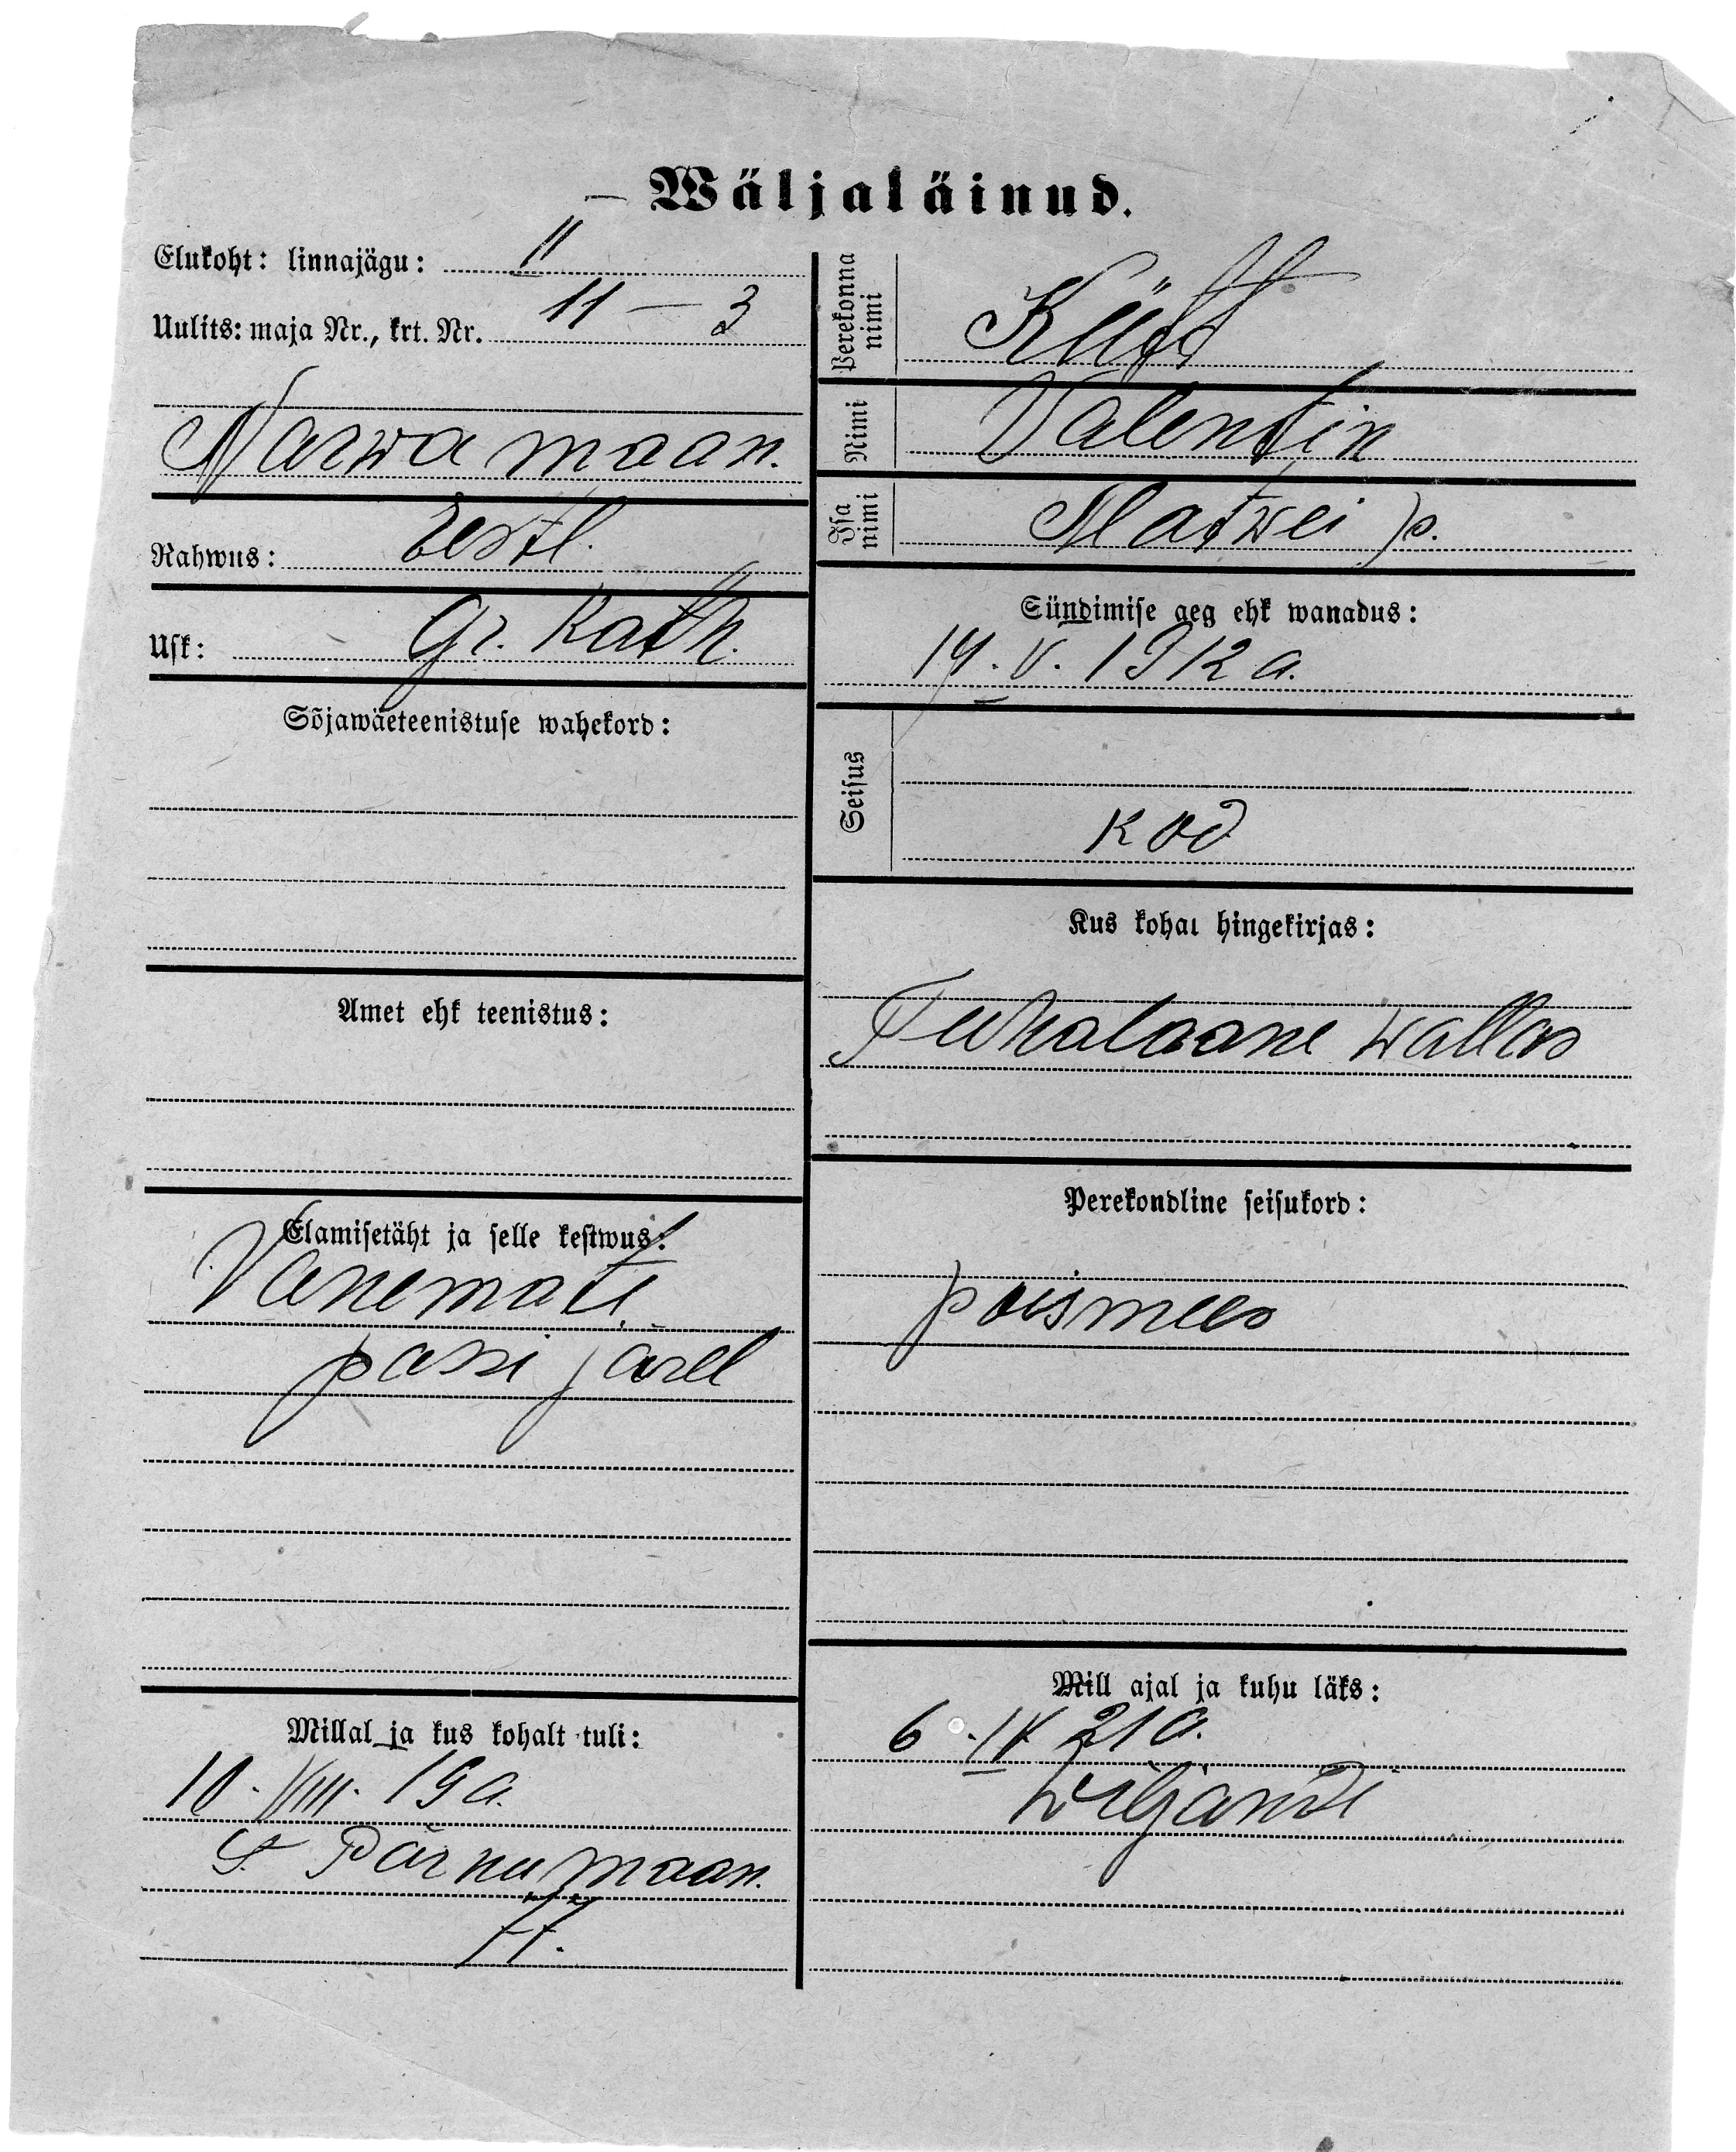 Wäljaläinud.
Elukoht: linnajägu: II
Uulits: maja Nr., krt. Nr. 11 — 3
Narwa maan.
Rahwus: Eestl.
Usk: Gr. Kath.
Sõjawäeteenistuse wahekord:
Amet ehk teenistus:
Elamisetäht ja selle kestwus:
Vanemate
passi järel
Millal ja kus kohalt tuli:
10. VIII. 19 a.
Pärnu maan.
Perekonna nimi
Nimi Valentin
Isa nimi Matwei p.
Sündimise aeg ehk wanadus:
14. V. 1912 a.
Seisus
kod
Kus kohat hingekirjas:
Tuhalaane wallas
Perekondline seisukord:
poismees
Mill ajal ja kuhu läks:
6. IV 21 a.
Wiljandi